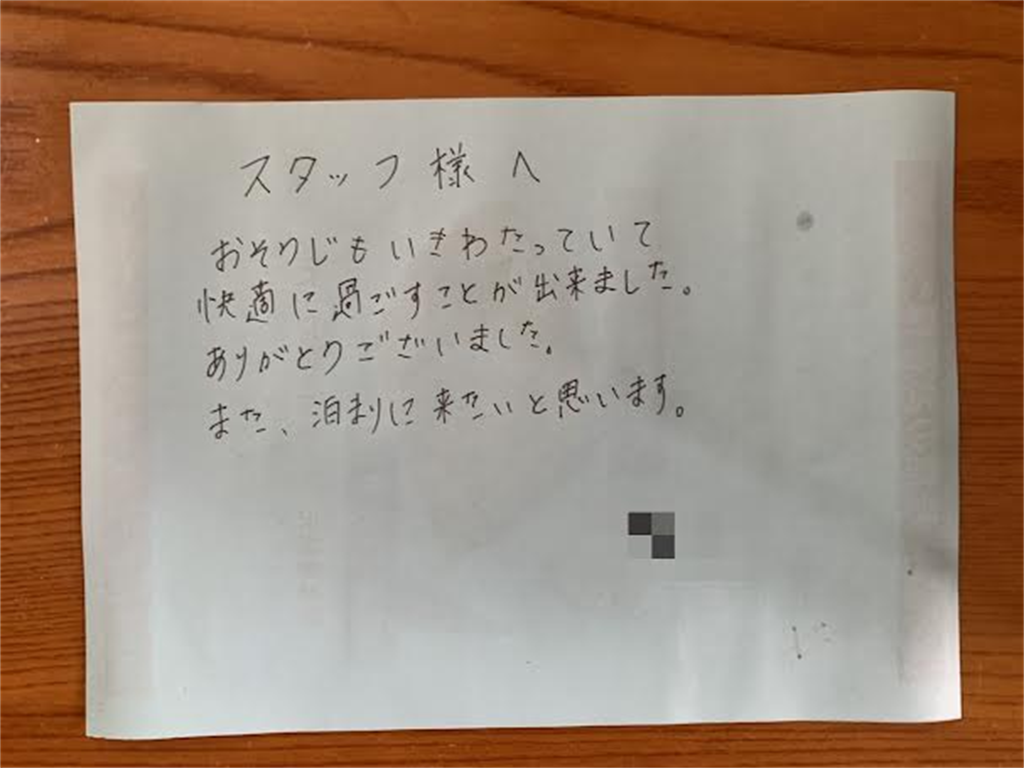 スタッフ様へ
おそうじもいきわたっていて
快適に過ごすことが出来ました。
ありがとうございました。
また、泊まりに来たいと思います。